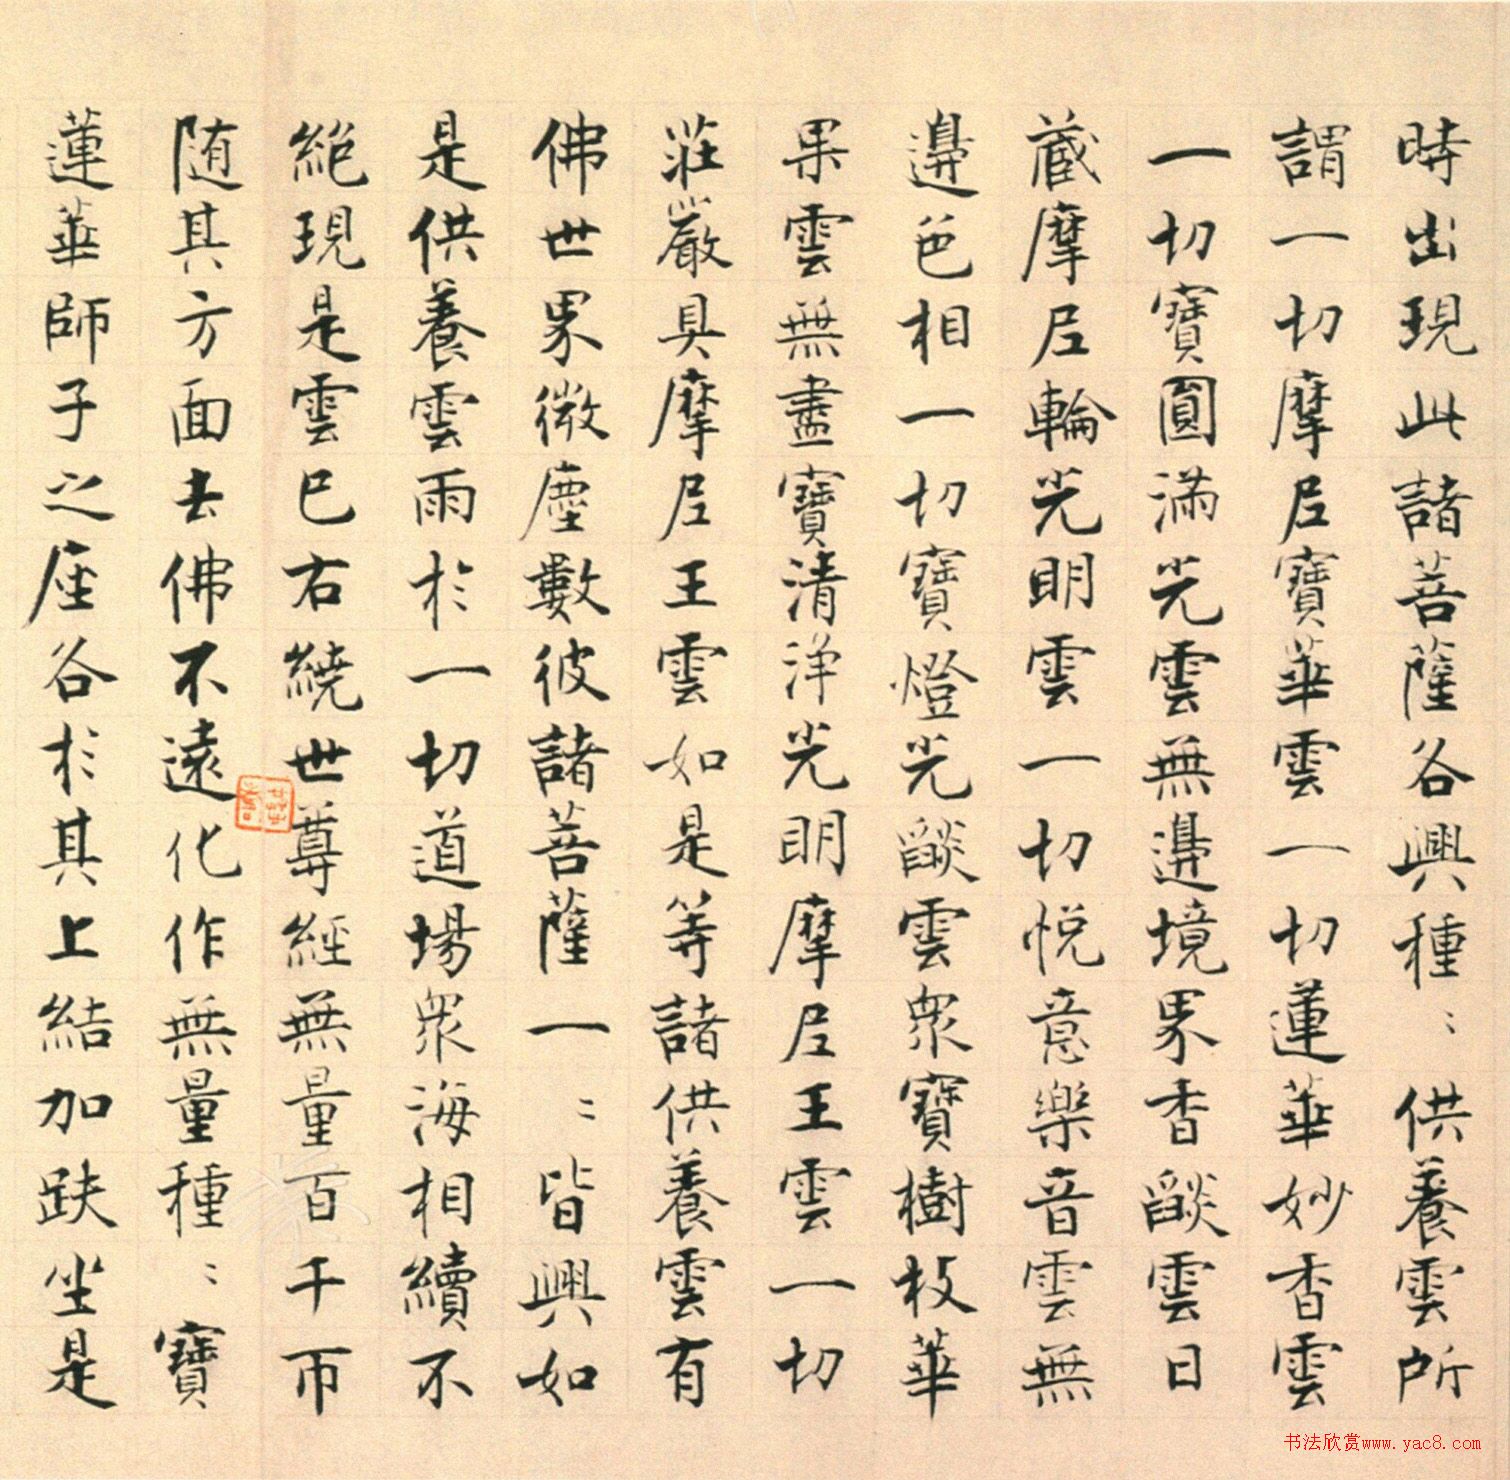 時出現此諸菩薩各興種〻供養雲所
謂一切摩尼寶華雲一切蓮華妙香雲
一切寶圓滿光雲無邊境界香燄雲日
藏摩尼輪光明雲一切悅意樂音雲無
邊色相一切寶燈光燄雲衆寶樹枝華
果雲無盡寶清淨光明摩尼王雲一切
莊嚴具摩尼王雲如是等諸供養雲有
佛世界微塵數彼諸菩薩一〻皆興如
是供養雲雨於一切道場衆海相續不
絕現是雲已右繞世尊經無量百千帀
随其方面去佛不遠化作無量種〻寶
蓮華師子之座各於其上結加趺坐是
书法欣赏www.yac8.com